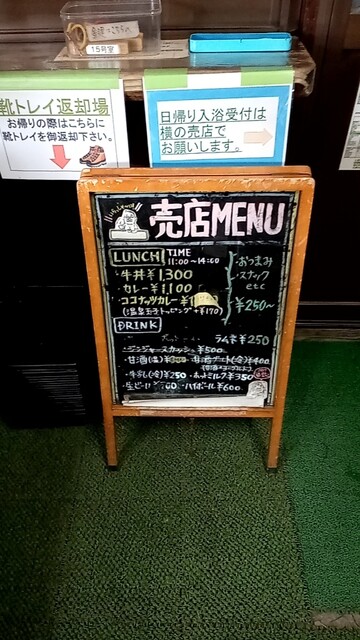 15号室
靴トレイ返却場
お帰りの際はこちらに
靴トレイを御返却下さい。
日帰り入浴受付は
横の売店で
お願いします。
売店MENU
LUNCH TIME
11:00~14:00
牛丼¥1,300
・カレー¥1,100
ココナッツカレー
(温泉玉子トッピング+¥170)
・おつまみ
・スナック
etc
¥250~
DRINK
ラムネ¥250
・ジンジャースカッシュ¥500
・甘酒(温)
¥400
・牛乳(冷)¥250 ・ホットミルク¥350
・生ビール ・ハイボール¥600